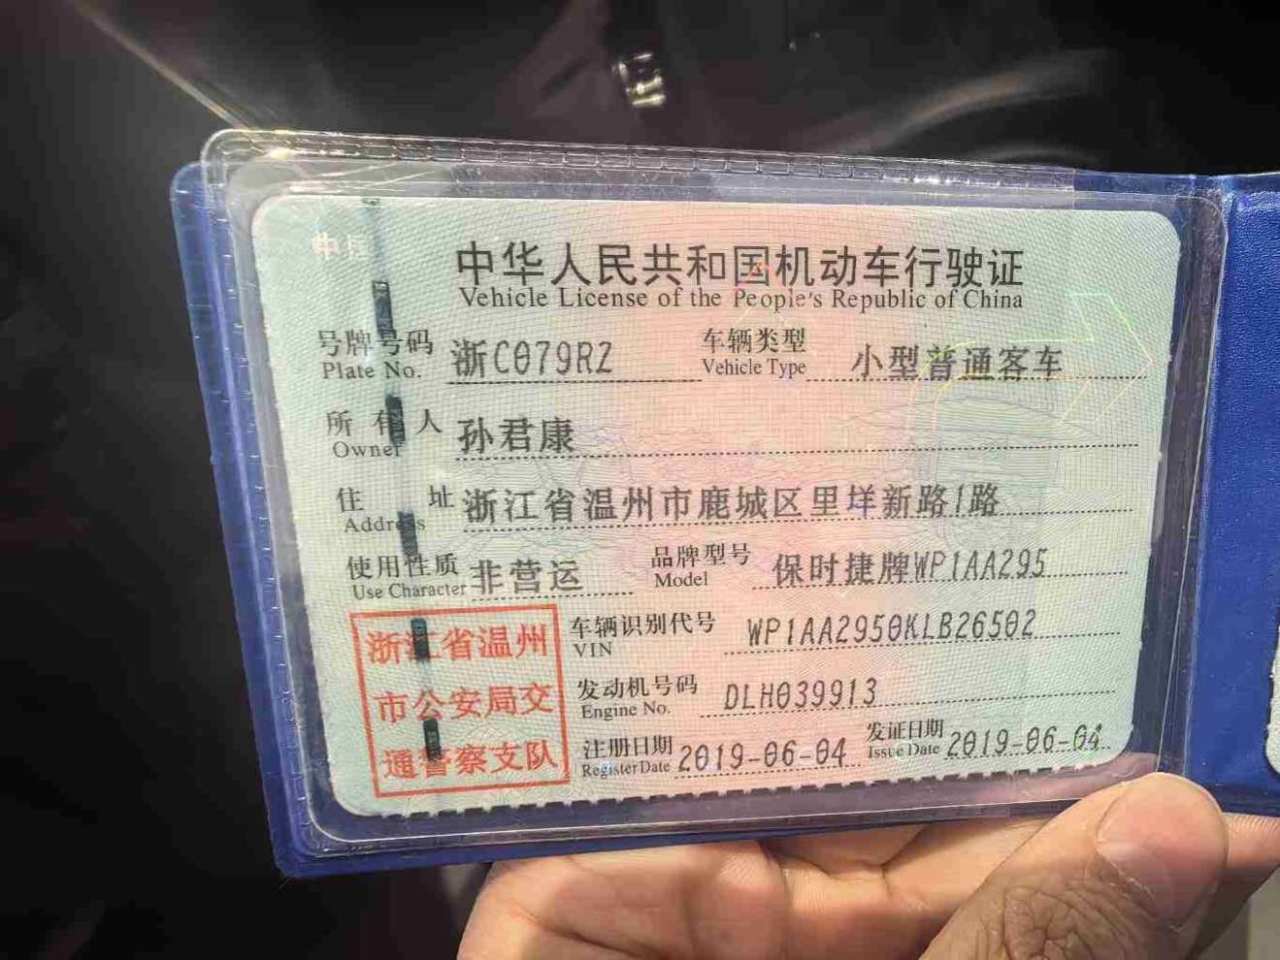 中华人民共和国机动车行驶证
Vehicle License of the People's Republic of China
号牌号码 浙C079RZ 车辆类型 小型普通客车
Plate No. Vehicle Type
所有人 孙君康
Owner
住址 浙江省温州市鹿城区里垟新路1路
Address
使用性质 非营运 品牌型号 保时捷牌WP1AA295
Use Character Model
浙江省温州 车辆识别代号 WP1AA2950KLB26502
VIN
市公安局交 发动机号码 DLH039913
Engine No.
通警察支队 注册日期 2019-06-04 发证日期 2019-06-04
Register Date Issue Date